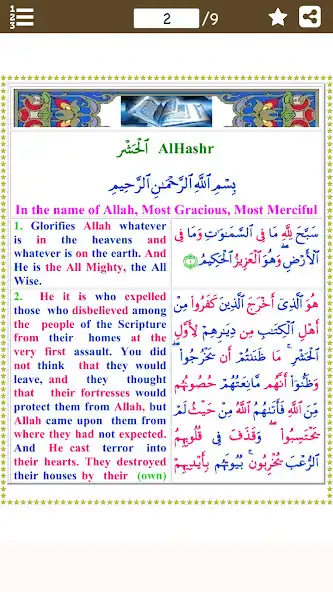 1
2
3
2 /9
ٱلْحَشْر AlHashr
بِسْمِ ٱللَّهِ ٱلرَّحْمَٰنِ ٱلرَّحِيمِ
In the name of Allah, Most Gracious, Most Merciful
1. Glorifies Allah whatever
is in the heavens and
whatever is on the earth. And
He is the All Mighty, the All
Wise.
سَبَّحَ لِلَّهِ مَا فِى ٱلسَّمَٰوَٰتِ وَمَا فِى
ٱلْأَرْضِ ۖ وَهُوَ ٱلْعَزِيزُ ٱلْحَكِيمُ ١
2. He it is who expelled
those who disbelieved among
the people of the Scripture
from their homes at the
very first assault. You did
not think that they would
leave, and they thought
that their fortresses would
protect them from Allah, but
Allah came upon them from
where they had not expected.
And He cast terror into
their hearts. They destroyed
their houses by their (own)
هُوَ ٱلَّذِىٓ أَخْرَجَ ٱلَّذِينَ كَفَرُوا۟ مِنْ
أَهْلِ ٱلْكِتَٰبِ مِن دِيَٰرِهِمْ لِأَوَّلِ
ٱلْحَشْرِ ۚ مَا ظَنَنتُمْ أَن يَخْرُجُوا۟ ۖ
وَظَنُّوٓا۟ أَنَّهُم مَّانِعَتُهُمْ حُصُونُهُم
مِّنَ ٱللَّهِ فَأَتَىٰهُمُ ٱللَّهُ مِنْ حَيْثُ لَمْ
يَحْتَسِبُوا۟ ۖ وَقَذَفَ فِى قُلُوبِهِمُ
ٱلرُّعْبَ ۚ يُخْرِبُونَ بُيُوتَهُم بِأَيْدِيهِمْ